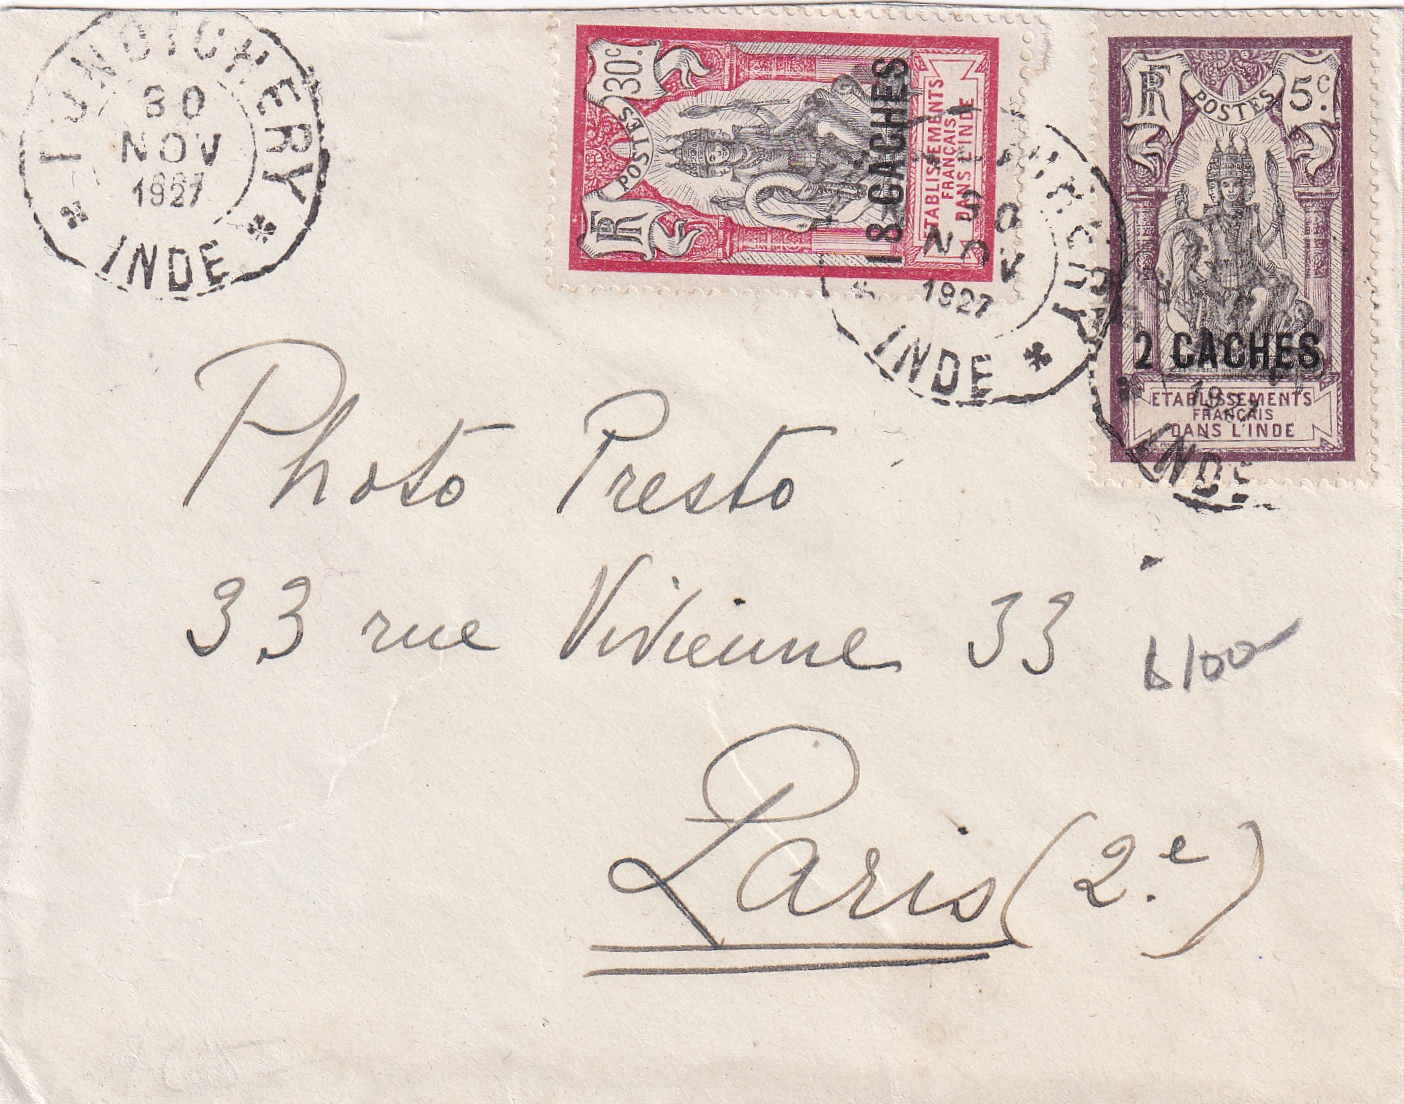 PONDICHERY
30
NOV
1927
INDE
RF
POSTES
30c.
18 CACHES
ETABLISSEMENTS
FRANÇAIS
DANS L'INDE
30
NOV
1927
INDE
RF
POSTES
5c.
2 CACHES
ETABLISSEMENTS
FRANÇAIS
DANS L'INDE
INDE
Photo Presto
33 rue Vivienne 33
Paris (2.e)